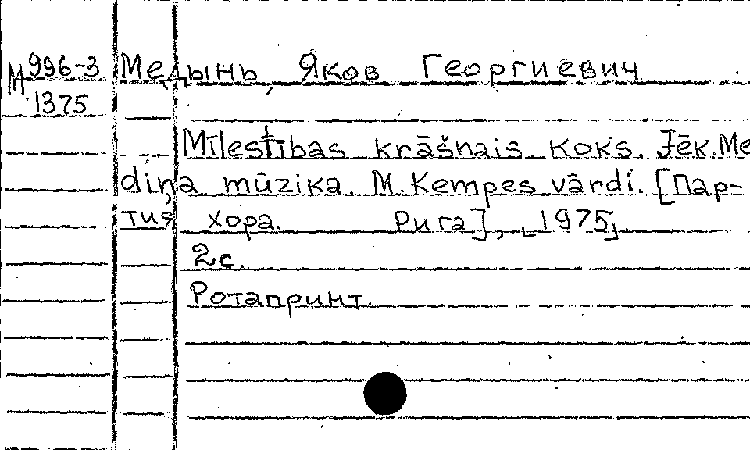 М 996-3 Медынь, Яков Георгиевич
1375
Mīlestības krāšņais koks. Jēk. Me-
diņa mūzika. M. Kempes vārdi. [Пар-
тия хора. Рига], [1975]
2с.
Ротапринт.